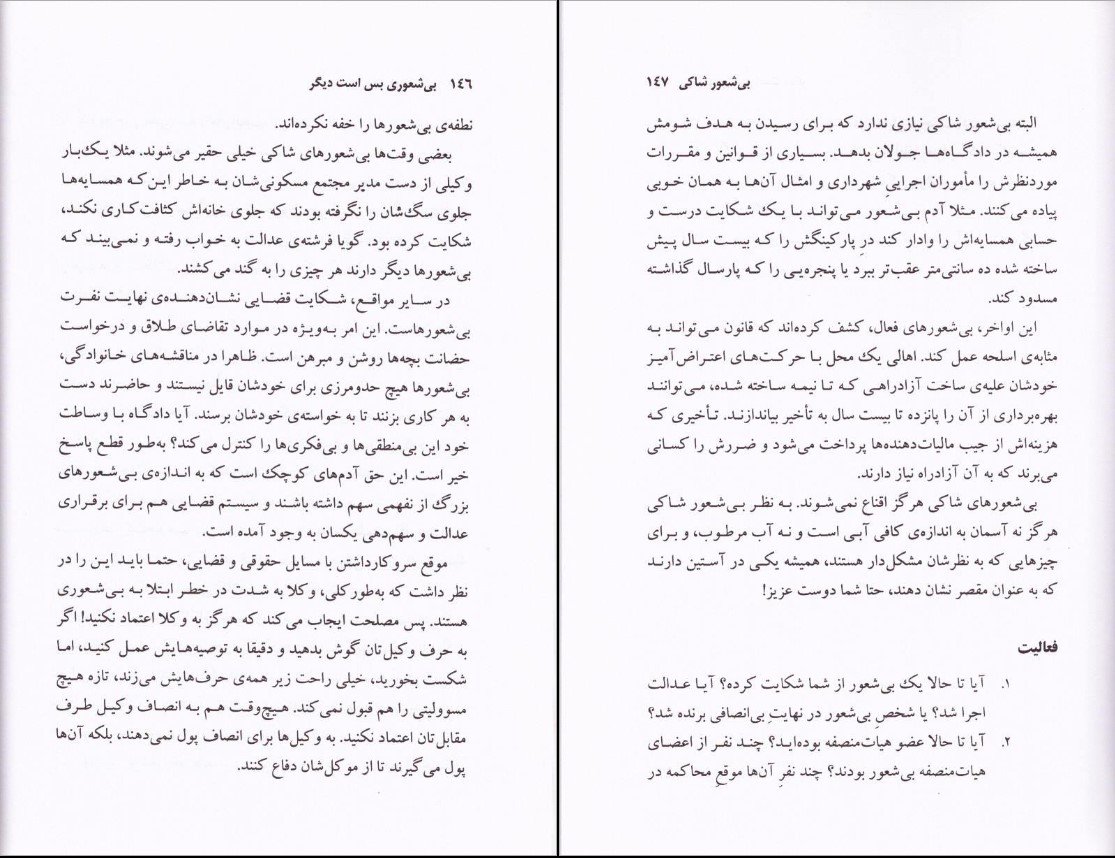 ۱۴۶ بی‌شعوری بس است دیگر
نطفه‌ی بی‌شعورها را خفه نکرده‌اند.
بعضی وقت‌ها بی‌شعورهای شاکی خیلی حقیر می‌شوند. مثلا یک‌بار
وکیلی از دست مدیر مجتمع مسکونی‌شان به خاطر این‌که همسایه‌ها
جلوی سگ‌شان را نگرفته بودند که جلوی خانه‌اش کثافت‌کاری نکند،
شکایت کرده بود. گویا فرشته‌ی عدالت به خواب رفته و نمی‌بیند که
بی‌شعورها دیگر دارند هر چیزی را به گند می‌کشند.
در سایر مواقع، شکایت قضایی نشان‌دهنده‌ی نهایت نفرت
بی‌شعورهاست. این امر به‌ویژه در موارد تقاضای طلاق و درخواست
حضانت بچه‌ها روشن و مبرهن است. ظاهرا در مناقشه‌های خانوادگی،
بی‌شعورها هیچ حدومرزی برای خودشان قایل نیستند و حاضرند دست
به هر کاری بزنند تا به خواسته‌ی خودشان برسند. آیا دادگاه با وساطت
خود این بی‌منطقی‌ها و بی‌فکری‌ها را کنترل می‌کند؟ به‌طور قطع پاسخ
خیر است. این حق آدم‌های کوچک است که به اندازه‌ی بی‌شعورهای
بزرگ از نفهمی سهم داشته باشند و سیستم قضایی هم برای برقراری
عدالت و سهم‌دهی یکسان به وجود آمده است.
موقع سروکارداشتن با مسایل حقوقی و قضایی، حتما باید این را در
نظر داشت که به‌طورکلی، وکلا به شدت در خطر ابتلا به بی‌شعوری
هستند. پس مصلحت ایجاب می‌کند که هرگز به وکلا اعتماد نکنید! اگر
به حرف وکیل‌تان گوش بدهید و دقیقا به توصیه‌هایش عمل کنید، اما
شکست بخورید، خیلی راحت زیر همه‌ی حرف‌هایش می‌زند، تازه هیچ
مسوولیتی را هم قبول نمی‌کند. هیچ‌وقت هم به انصاف وکیل طرف
مقابل‌تان اعتماد نکنید. به وکیل‌ها برای انصاف پول نمی‌دهند، بلکه آن‌ها
پول می‌گیرند تا از موکل‌شان دفاع کنند.
بی‌شعور شاکی ۱۴۷
البته بی‌شعور شاکی نیازی ندارد که برای رسیدن به هدف شومش
همیشه در دادگاه‌ها جولان بدهد. بسیاری از قوانین و مقررات
موردنظرش را مأموران اجراییِ شهرداری و امثال آن‌ها به همان خوبی
پیاده می‌کنند. مثلا آدم بی‌شعور می‌تواند با یک شکایت درست و
حسابی همسایه‌اش را وادار کند درِ پارکینگش را که بیست سال پیش
ساخته شده ده سانتی‌متر عقب‌تر ببرد یا پنجره‌یی را که پارسال گذاشته
مسدود کند.
این اواخر، بی‌شعورهای فعال، کشف کرده‌اند که قانون می‌تواند به
مثابه‌ی اسلحه عمل کند. اهالی یک محل با حرکت‌های اعتراض‌آمیز
خودشان علیه‌ی ساخت آزادراهی که تا نیمه ساخته شده، می‌توانند
بهره‌برداری از آن را پانزده تا بیست سال به تأخیر بیاندازند. تأخیری که
هزینه‌اش از جیب مالیات‌دهنده‌ها پرداخت می‌شود و ضررش را کسانی
می‌برند که به آن آزادراه نیاز دارند.
بی‌شعورهای شاکی هرگز اقناع نمی‌شوند. به نظر بی‌شعور شاکی
هرگز نه آسمان به اندازه‌ی کافی آبی است و نه آب مرطوب، و برای
چیزهایی که به نظرشان مشکل‌دار هستند، همیشه یکی در آستین دارند
که به عنوان مقصر نشان دهند، حتا شما دوست عزیز!
فعالیت
۱. آیا تا حالا یک بی‌شعور از شما شکایت کرده؟ آیا عدالت
اجرا شد؟ یا شخصِ بی‌شعور در نهایتِ بی‌انصافی برنده شد؟
۲. آیا تا حالا عضو هیات‌منصفه بوده‌اید؟ چند نفر از اعضای
هیات‌منصفه بی‌شعور بودند؟ چند نفرِ آن‌ها موقعِ محاکمه در